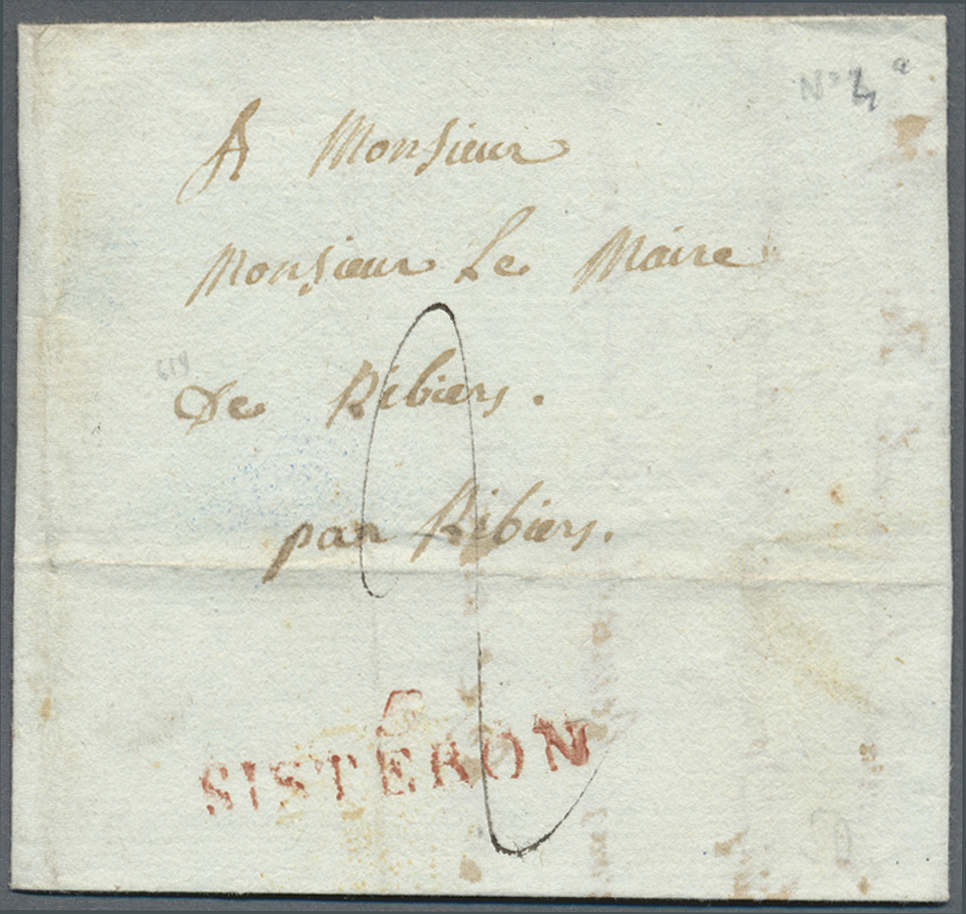 N° 4 a
A Monsieur
Monsieur Le Maire
De Ribiers.
par Ribiers.
2
5
SISTERON